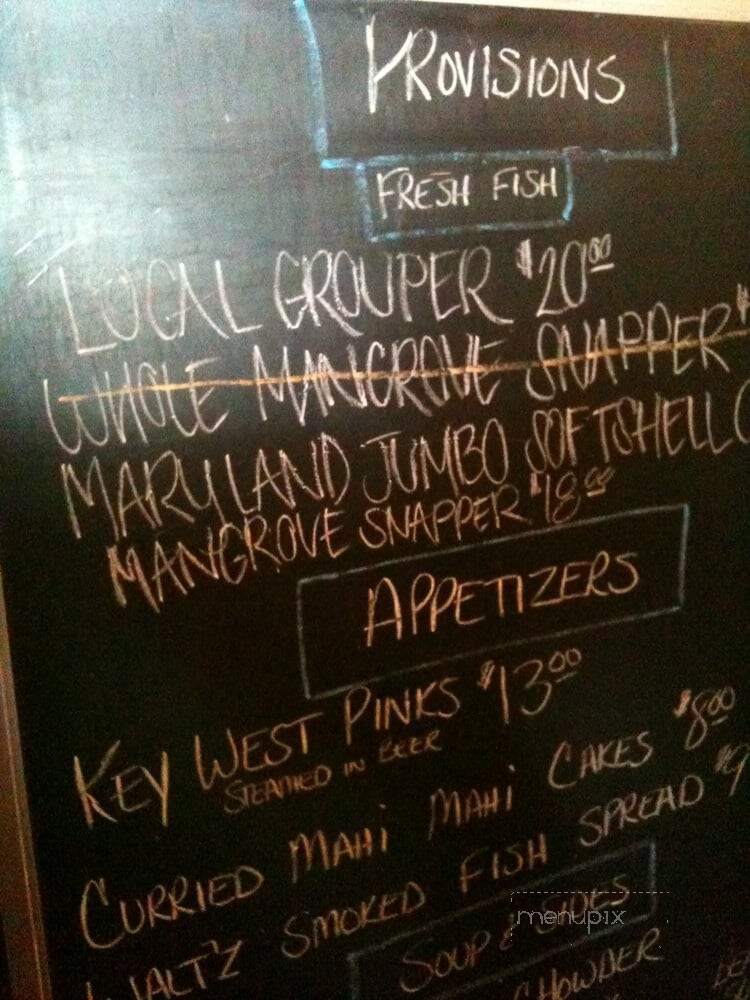 PROVISIONS
FRESH FISH
LOCAL GROUPER $20.00
WHOLE MANGROVE SNAPPER $
MARYLAND JUMBO SOFTSHELL C
MANGROVE SNAPPER $18.00
APPETIZERS
KEY WEST PINKS $13.00
STEAMED IN BEER
CURRIED MAHI MAHI CAKES $8.00
WALT'Z SMOKED FISH SPREAD $9
SOUP & SIDES
menupix
CHOWDER